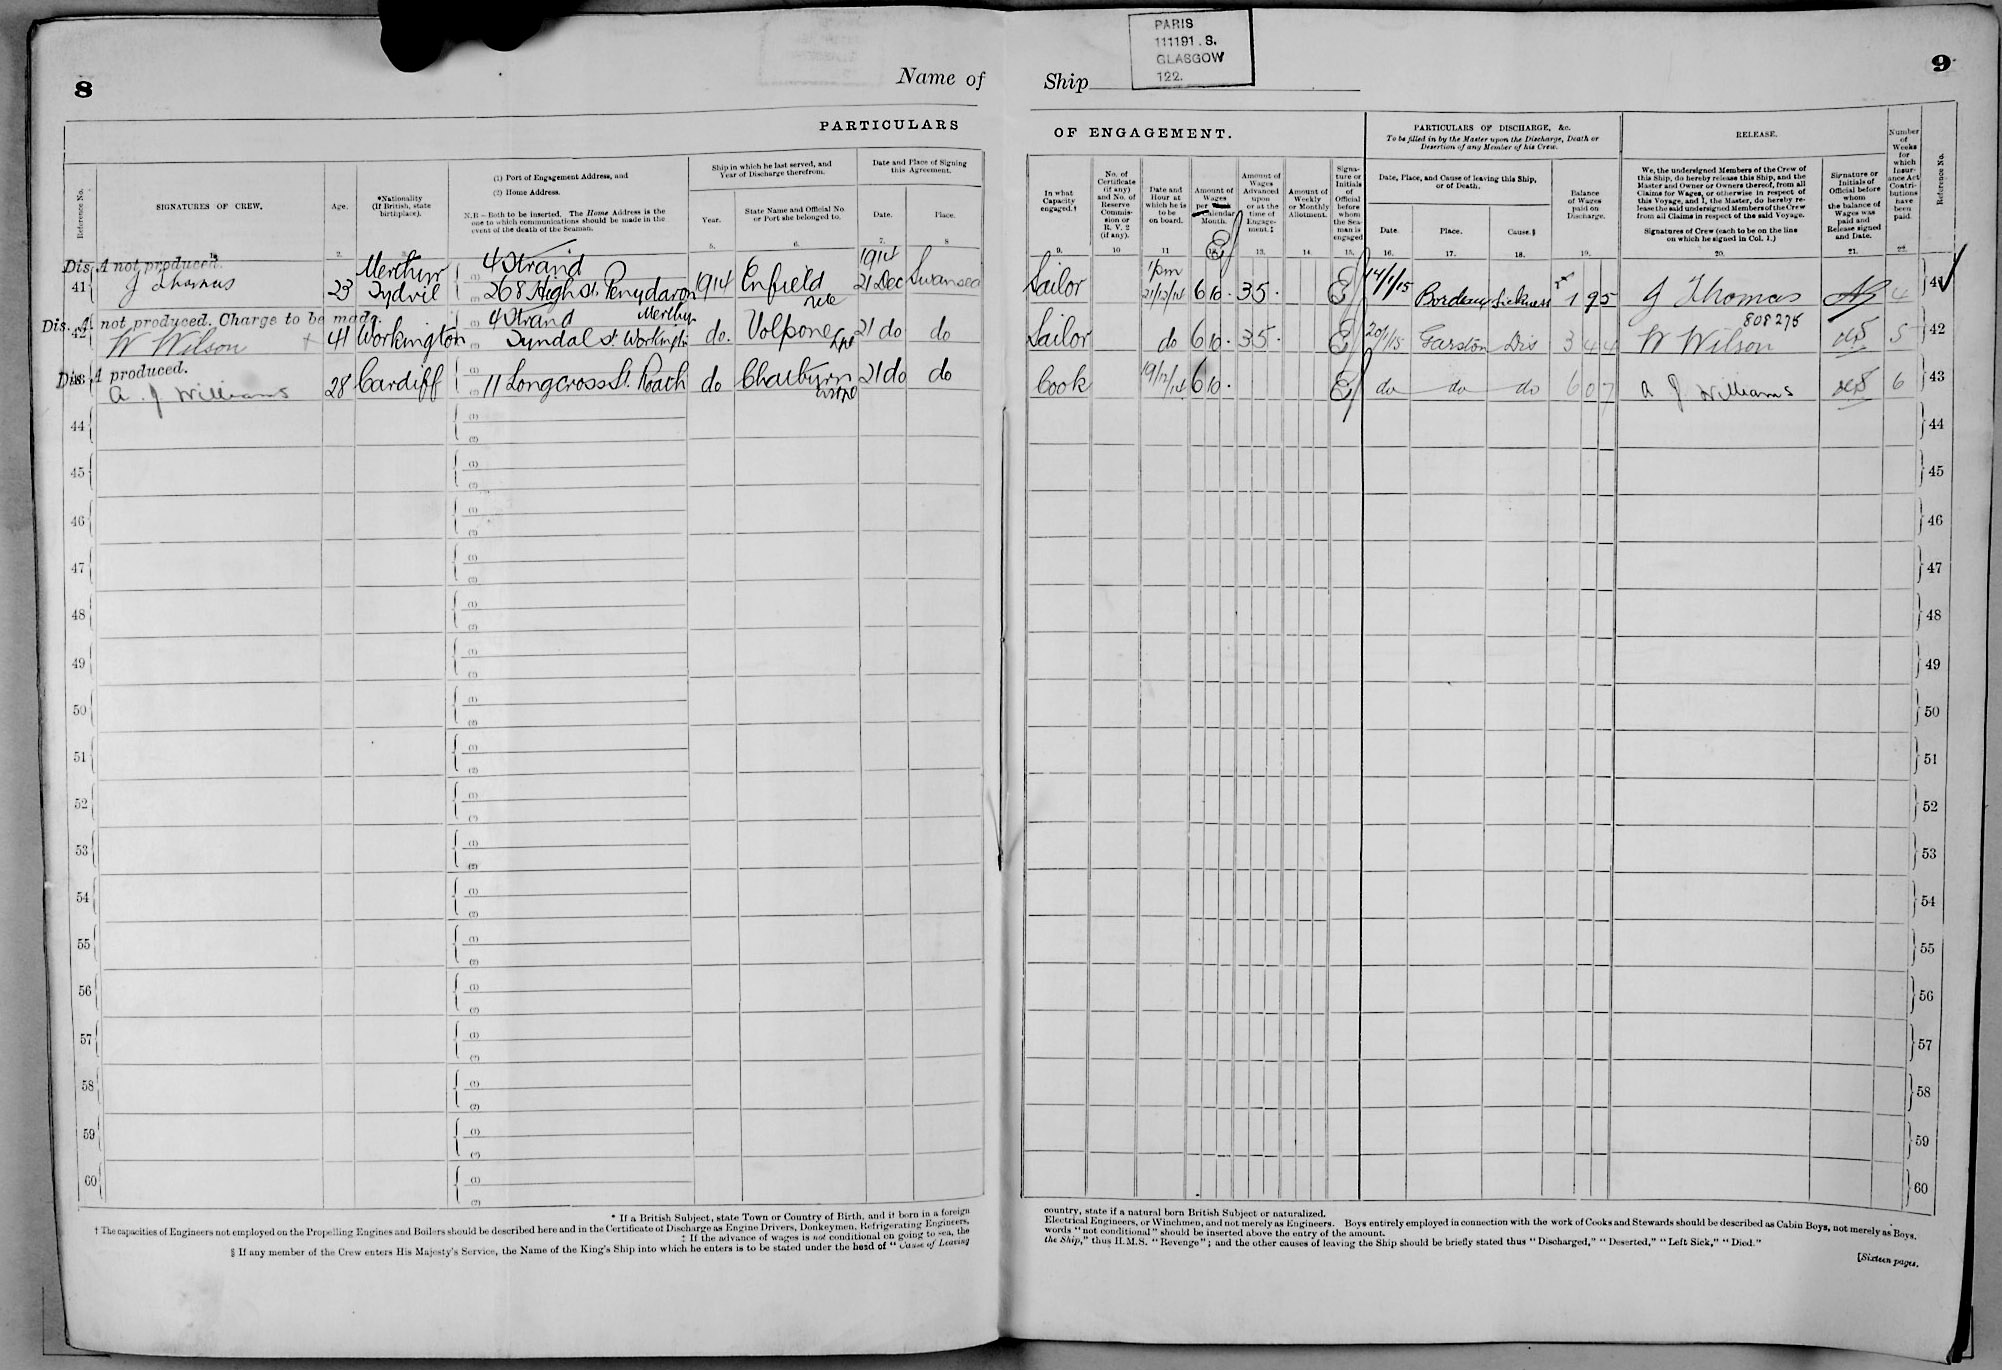 8
Name of
Ship
PARIS
111191. S.
GLASGOW
122.
9
PARTICULARS
OF ENGAGEMENT.
PARTICULARS OF DISCHARGE, &c.
To be filled in by the Master upon the Discharge, Death or
Desertion of any Member of his Crew.
RELEASE.
Number
of
Weeks
for
which
Insur-
ance Act
Contri-
butions
have
been
paid.
Reference No.
Reference No.
SIGNATURES OF CREW.
Age.
*Nationality
(If British, state
birthplace).
(1) Port of Engagement Address, and
(2) Home Address.
N.B—Both to be inserted. The Home Address is the
one to which communications should be made in the
event of the death of the Seaman.
Ship in which he last served, and
Year of Discharge therefrom.
Year.
State Name and Official No.
or Port she belonged to.
Date and Place of Signing
this Agreement.
Date.
Place.
In what
Capacity
engaged.†
No. of
Certificate
(if any)
and No. of
Reserve
Commis-
sion or
R. V. 2
(if any).
Date and
Hour at
which he is
to be
on board.
Amount of
Wages
per
Calendar
Month.
Amount of
Wages
Advanced
upon
or at the
time of
Engage-
ment.‡
Amount of
Weekly
or Monthly
Allotment.
Signa-
ture or
Initials
of
Official
before
whom
the Sea-
man is
engaged
Date, Place, and Cause of leaving this Ship,
or of Death.
Date.
Place.
Cause.§
Balance
of Wages
paid on
Discharge.
We, the undersigned Members of the Crew of
this Ship, do hereby release this Ship, and the
Master and Owner or Owners thereof, from all
Claims for Wages, or otherwise in respect of
this Voyage, and I, the Master, do hereby re-
lease the said undersigned Members of the Crew
from all Claims in respect of the said Voyage.
Signatures of Crew (each to be on the line
on which he signed in Col. 1.)
Signature or
Initials of
Official before
whom
the balance of
Wages was
paid and
Release signed
and Date.
2. 5. 6. 7. 8 9. 10 11 13. 14. 15. 16. 17. 18. 19. 20. 21. 22.
Dis. A not produced.
41 J Thomas 23 Merthyr Tydvil (1) 4 Strand (2) 268 High St. Penydaron Merthyr 1914 Enfield 1914 21 Dec Swansea Sailor 1pm 21/12/14 6 10 . 3 5 . 14/1/15 Bordeaux Sickness 1 9 5 J Thomas 4 41
Dis. A not produced. Charge to be made.
42 W Wilson 41 Workington 4 Strand Tyndal St. Workington do. Volpone Lpl 21 do do Sailor do 6 10 . 3 5 . 20/1/15 Garston Dis 3 4 4 W Wilson 808275 5 42
Dis. A produced.
A. J Williams 28 Cardiff 11 Longcross St. Roath do Chatburn 21 do do Cook 19/12/14 6 10 . do do do 6 0 7 A J Williams 6 43
44 (1) (2) 44
45 (1) (2) 45
46 (1) (2) 46
47 (1) (2) 47
48 (1) (2) 48
49 (1) (2) 49
50 (1) (2) 50
51 (1) (2) 51
52 (1) (2) 52
53 (1) (2) 53
54 (1) (2) 54
55 (1) (2) 55
56 (1) (2) 56
57 (1) (2) 57
58 (1) (2) 58
59 (1) (2) 59
60 (1) (2) 60
* If a British Subject, state Town or Country of Birth, and if born in a foreign
† The capacities of Engineers not employed on the Propelling Engines and Boilers should be described here and in the Certificate of Discharge as Engine Drivers, Donkeymen, Refrigerating Engineers,
‡ If the advance of wages is not conditional on going to sea, the
§ If any member of the Crew enters His Majesty's Service, the Name of the King's Ship into which he enters is to be stated under the head of "Cause of Leaving
country, state if a natural born British Subject or naturalized.
Electrical Engineers, or Winchmen, and not merely as Engineers. Boys entirely employed in connection with the work of Cooks and Stewards should be described as Cabin Boys, not merely as Boys.
words "not conditional" should be inserted above the entry of the amount.
the Ship," thus H.M.S. "Revenge"; and the other causes of leaving the Ship should be briefly stated thus "Discharged," "Deserted," "Left Sick," "Died."
[Sixteen pages.